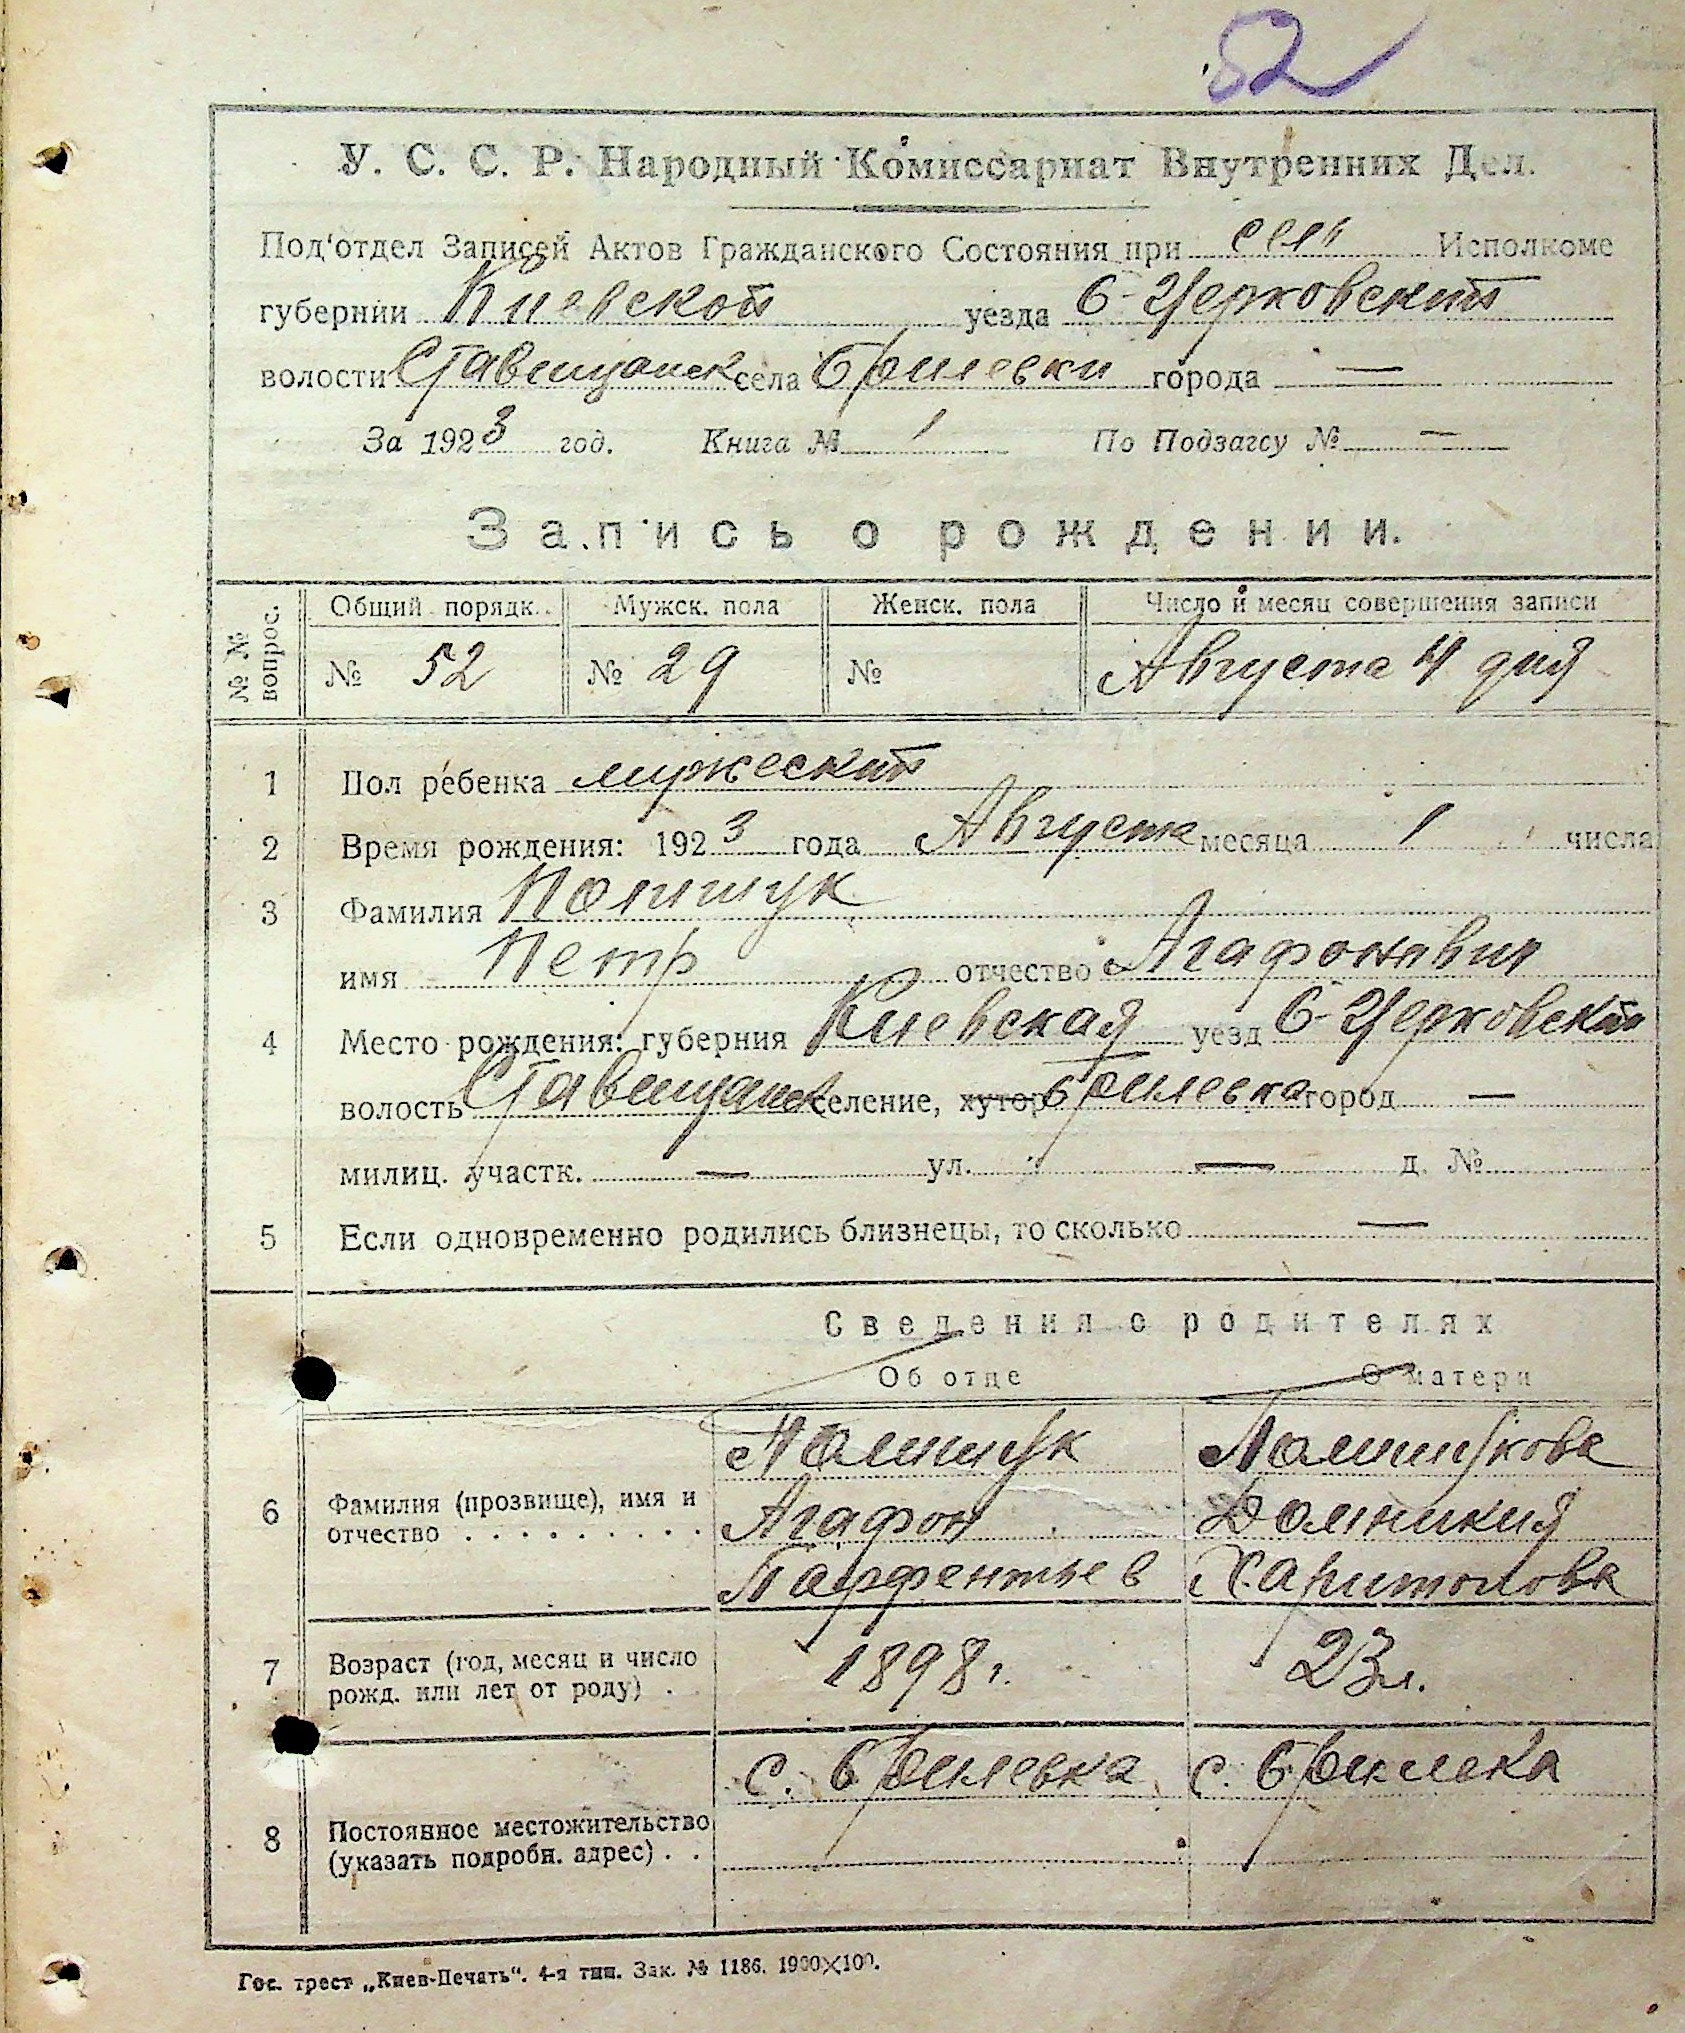 52
У. С. С. Р. Народный Комиссариат Внутренних Дел.
Под'отдел Записей Актов Гражданского Состояния при сель Исполкоме
губернии Киевской уезда Б-Церковский
волости Ставищанск села Брилевки города —
За 1923 год. Книга № 1 По Подзагсу № —
Запись о рождении.
№ № вопрос. Общий порядк. Мужск. пола Женск. пола Число и месяц совершения записи
№ 52 № 29 № Августа 4 дня
1 Пол ребенка мужеский
2 Время рождения: 1923 года Августа месяца 1 числа
3 Фамилия
имя Петр отчество Агафонавич
4 Место рождения: губерния Киевская уезд Б-Церковский
волость Ставищанск селение, хутор Брилевка город —
милиц. участк. — ул. — д. №
5 Если одновременно родились близнецы, то сколько —
Сведения о родителях
Об отце О матери
6 Фамилия (прозвище), имя и
отчество Агафон Домникия
Парфентьев Харитонова
7 Возраст (год, месяц и число
рожд. или лет от роду) 1898 г. 23 л.
с. Брилевка с.
8 Постоянное местожительство
(указать подробн. адрес)
Гос. трест „Киев-Печать“. 4-я тип. Зак. № 1186. 1900×100.